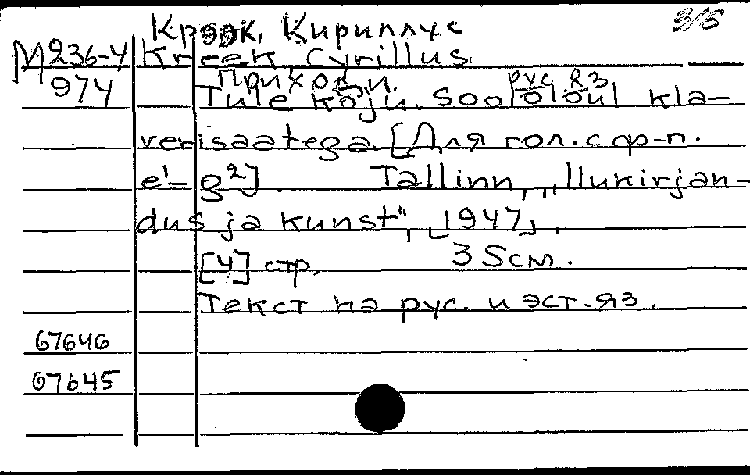 Крээк, Кириллус
3/5
М236-4 Kreek, Cyrillus
974 Приходи. рус. яз.
Tule koju. Soololaul kla-
verisaatega. [Для гол. с ф-п.
e¹-g²]. Tallinn, „Ilukirjan-
dus ja kunst", [1947].
[4] стр. 35см.
Текст на рус. и эст. яз.
67646
67645